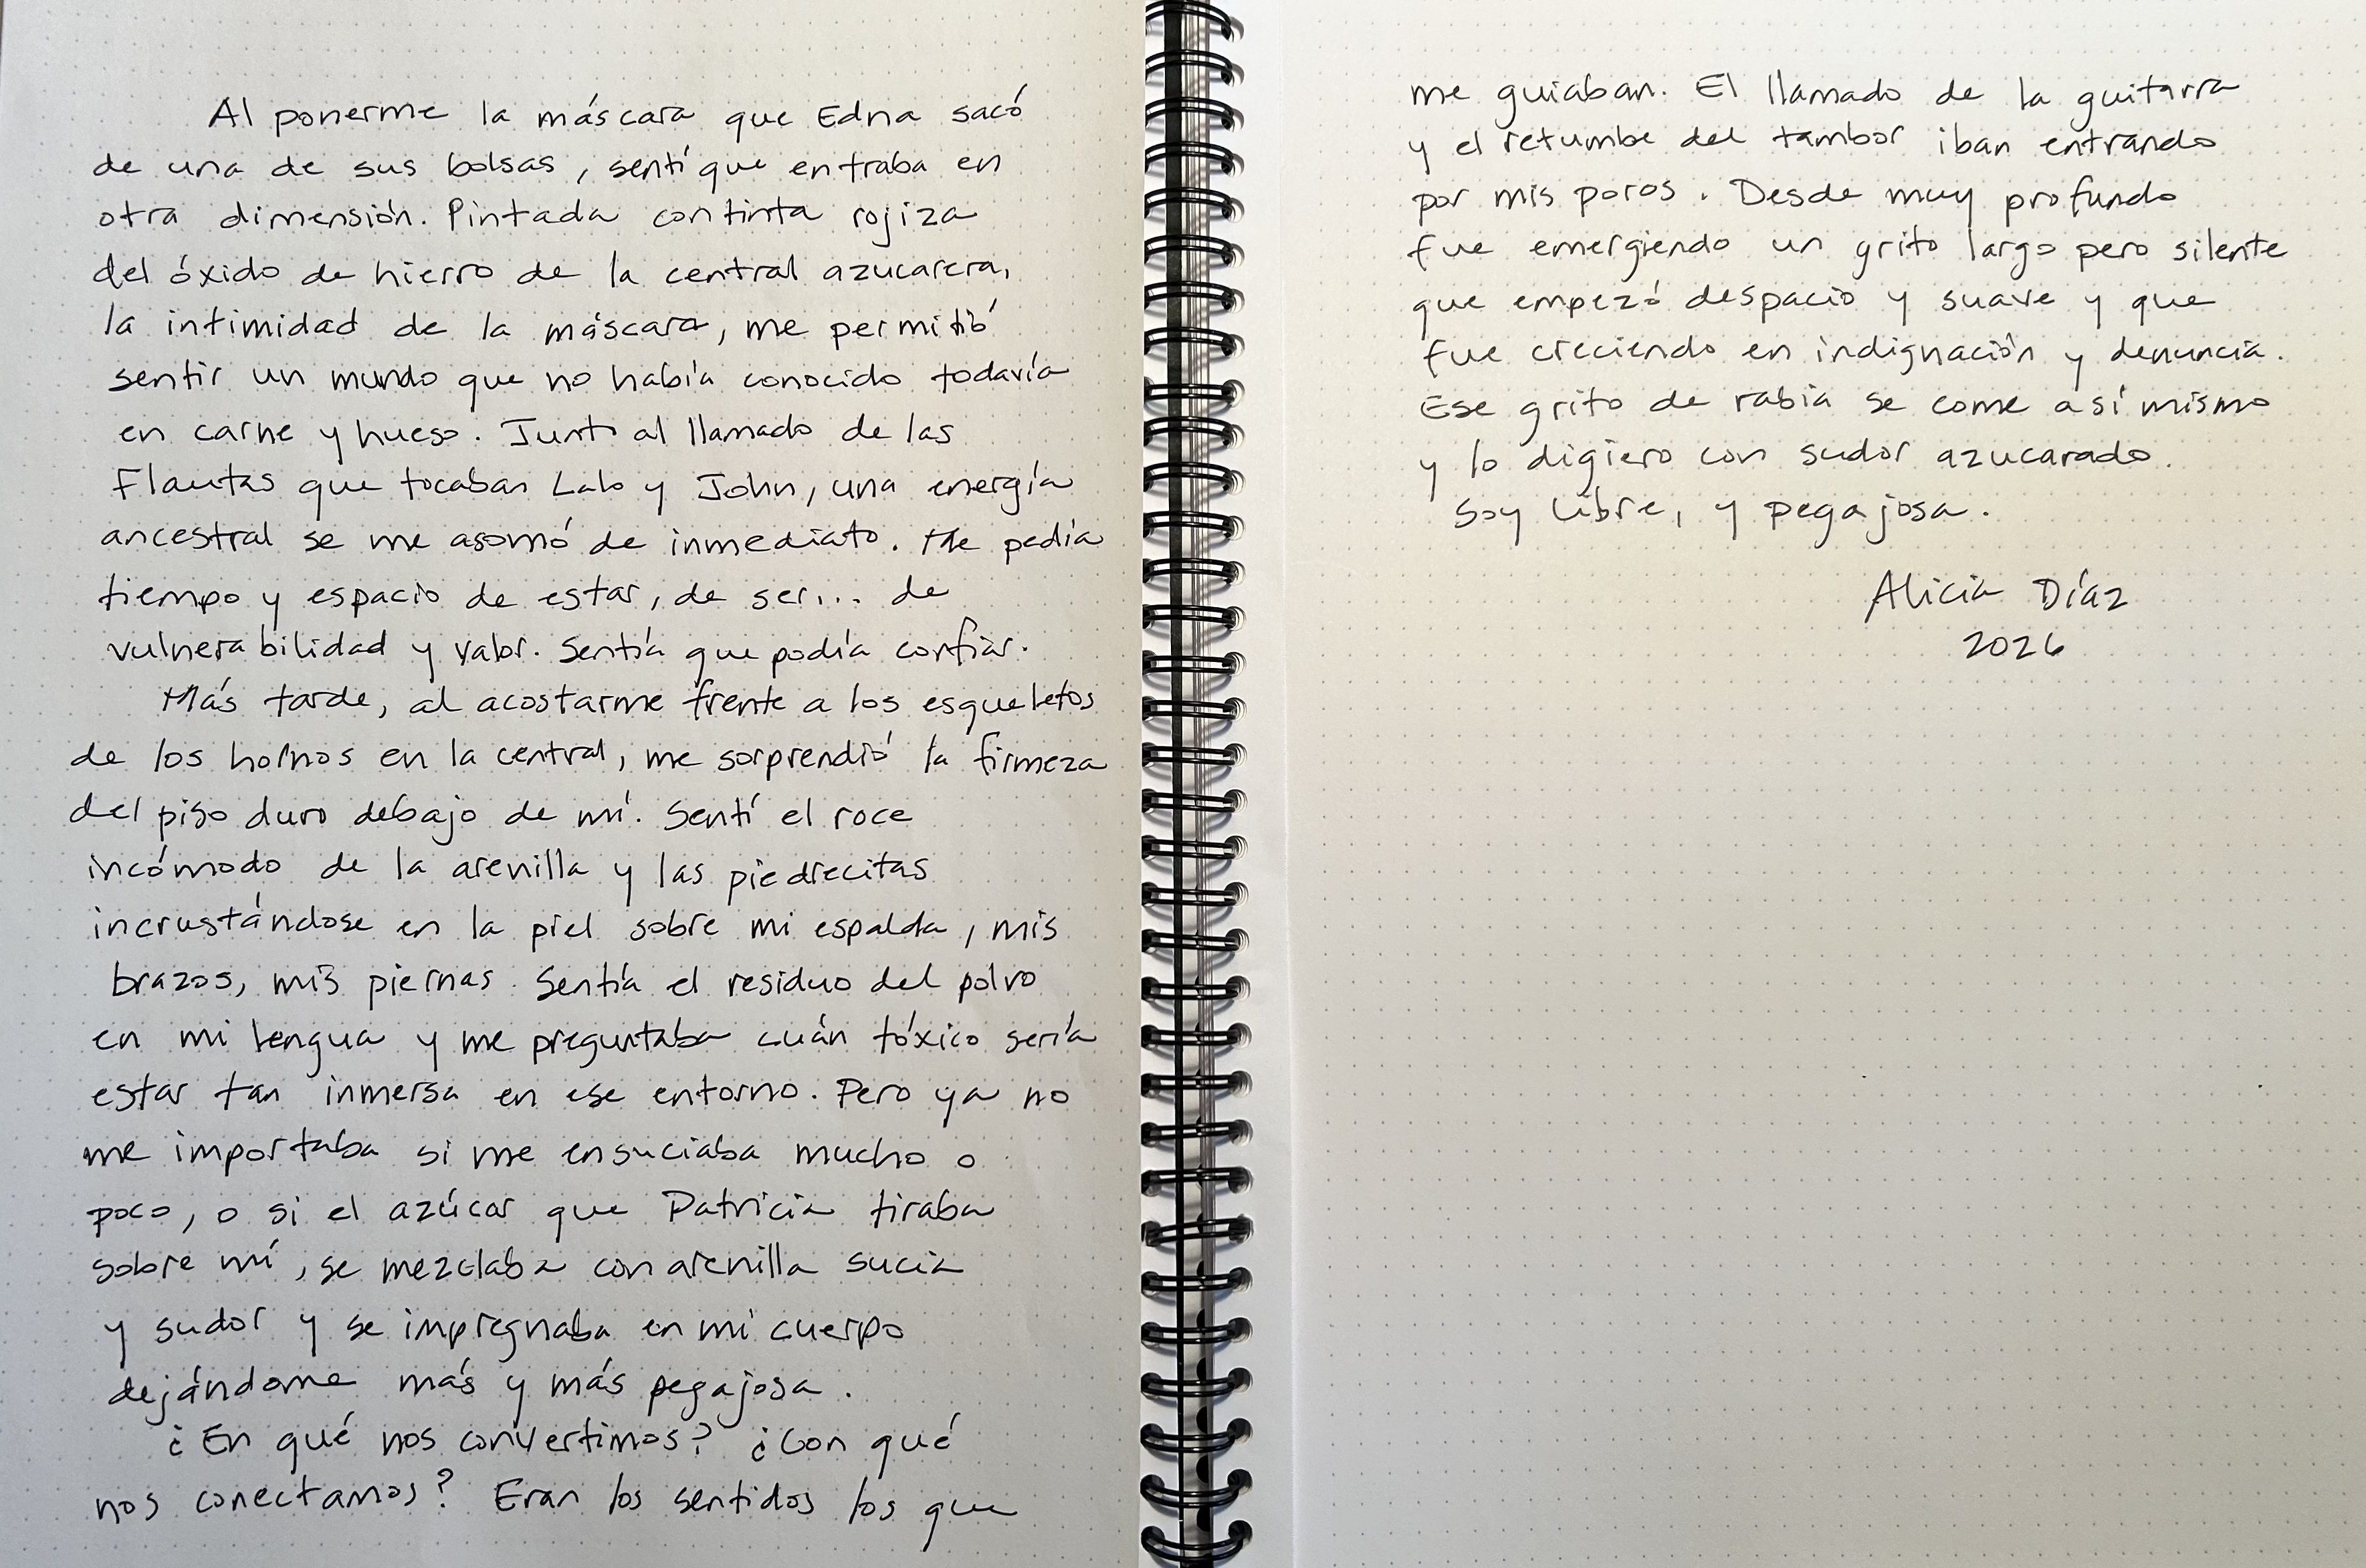 Al ponerme la máscara que Edna sacó
de una de sus bolsas, sentí que entraba en
otra dimensión. Pintada con tinta rojiza
del óxido de hierro de la central azucarera,
la intimidad de la máscara, me permitió
sentir un mundo que no había conocido todavía
en carne y hueso. Junto al llamado de las
flautas que tocaban Lalo y John, una energía
ancestral se me asomó de inmediato. Me pedía
tiempo y espacio de estar, de ser... de
vulnerabilidad y valor. Sentía que podía confiar.
Más tarde, al acostarme frente a los esqueletos
de los hornos en la central, me sorprendió la firmeza
del piso duro debajo de mí. Sentí el roce
incómodo de la arenilla y las piedrecitas
incrustándose en la piel sobre mi espalda, mis
brazos, mis piernas. Sentía el residuo del polvo
en mi lengua y me preguntaba cuán tóxico sería
estar tan inmersa en ese entorno. Pero ya no
me importaba si me ensuciaba mucho o
poco, o si el azúcar que Patricia tiraba
sobre mí, se mezclaba con arenilla sucia
y sudor y se impregnaba en mi cuerpo
dejándome más y más pegajosa.
¿En qué nos convertimos? ¿Con qué
nos conectamos? Eran los sentidos los que
me guiaban. El llamado de la guitarra
y el retumbe del tambor iban entrando
por mis poros. Desde muy profundo
fue emergiendo un grito largo pero silente
que empezó despacio y suave y que
fue creciendo en indignación y denuncia.
Ese grito de rabia se come a sí mismo
y lo digiero con sudor azucarado.
Soy libre, y pegajosa.
Alicia Díaz
2026